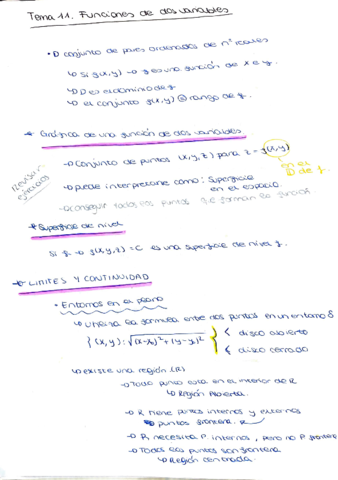 Tema 11. Funciones de dos variables
• D conjunto de pares ordenados de nº reales
↳ Si g(x,y) → g es una función de x e y.
↳ D es el dominio de g
↳ el conjunto g(x,y) rango de g.
Gráfica de una función de dos variables
→ Conjunto de puntos (x,y,z) para z = g(x,y)
en el D de g.
→ puede interpretarse como: Superficie en el espacio.
→ conseguir todos los puntos que forman la función
Superficie de nivel
Si g → g(x,y,z) = C es una superficie de nivel g.
LIMITES Y CONTINUIDAD
• Entornos en el plano
↳ Utiliza la formula entre dos puntos en un entorno δ
{(x,y): √(x-x₀)²+(y-y₀)² } < disco abierto
≤ disco cerrado
↳ existe una región (R)
→ Todo punto esta en el interior de R
↳ Región Abierta.
→ R tiene puntos internos y externos
↳ puntos frontera R
→ R, necesita P internos, pero no P frontera
→ Todos los puntos son frontera
↳ Región cerrada.